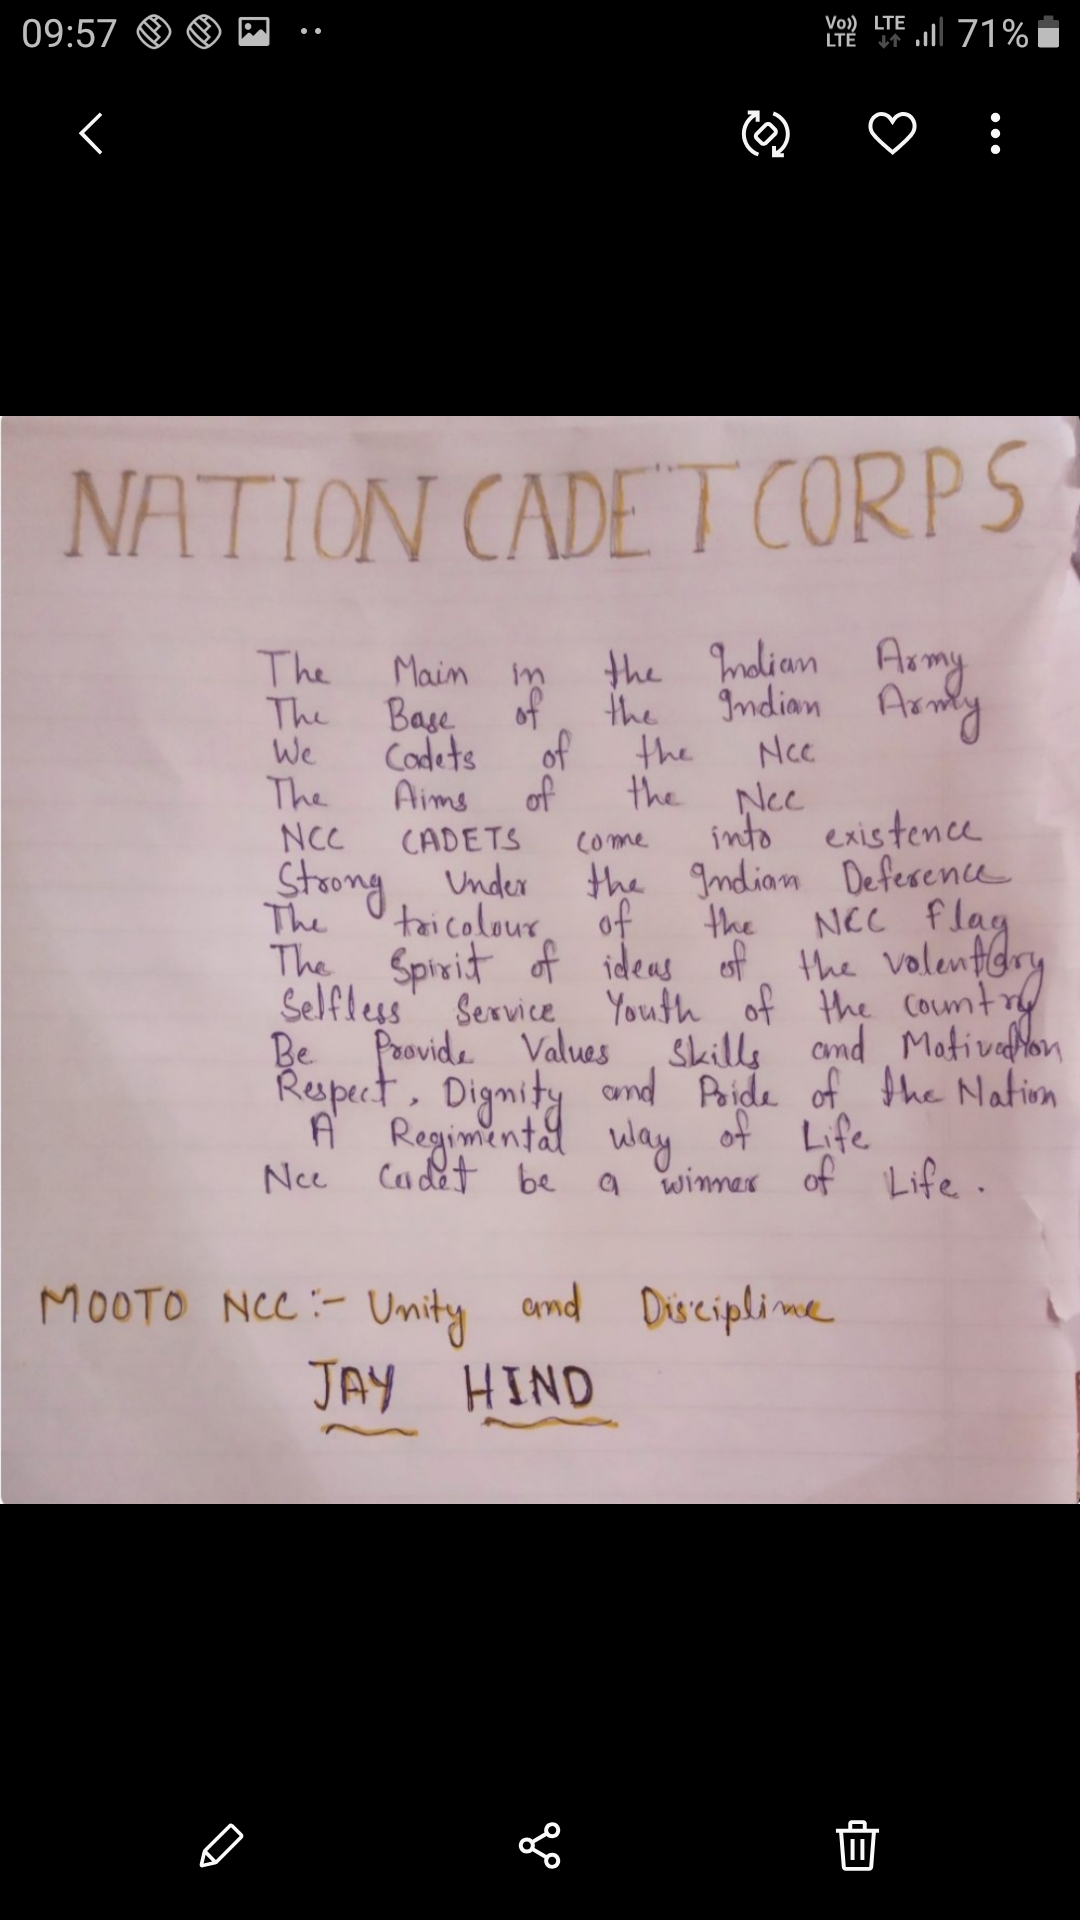 09:57
Vo)) LTE LTE 71%
NATION CADET CORPS
The Main in the Indian Army
The Base of the Indian Army
We Cadets of the Ncc
The Aims of the Ncc
NCC CADETS come into existence
Strong Under the Indian Deference
The tricolour of the NCC Flag
The Spirit of ideas of the volentary
Selfless Service Youth of the country
Be Provide Values Skills and Motivation
Respect, Dignity and Pride of the Nation
A Regimental way of Life
Ncc Cadet be a winner of Life.
MOOTO NCC :- Unity and Discipline
JAY HIND